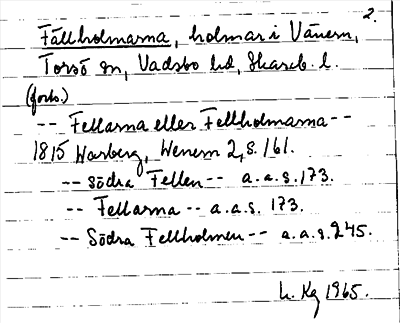 2.
Fällholmarna, holmar i Vänern,
Torsö sn, Vadsbo hd, Skarab. l.
(forts.)
-- Fellarna eller Fellholmarna --
1815 Warberg, Wenern 2, s. 161.
-- södra Fellen -- a.a.s. 173.
-- Fellarna -- a.a.s. 173.
-- Södra Fellholmen -- a.a.s. 245.
L. Kg 1965.